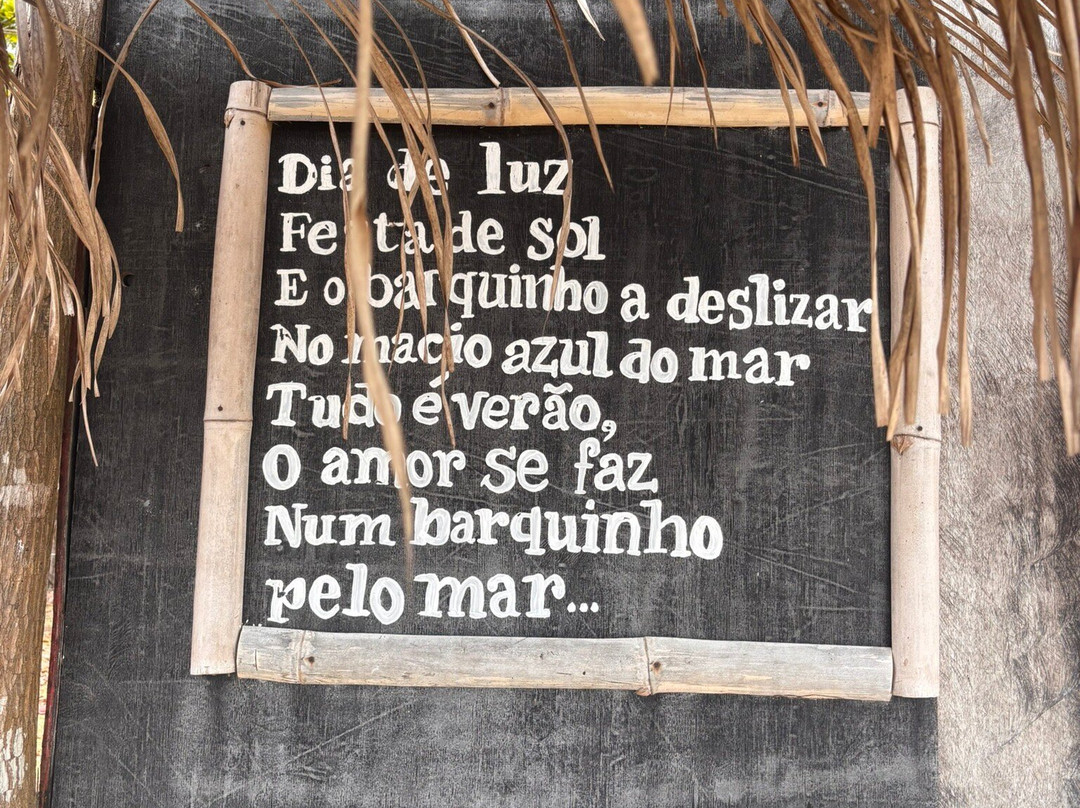 Dia de luz
Festa de sol
E o barquinho a deslizar
No macio azul do mar
Tudo é verão,
O amor se faz
Num barquinho
pelo mar...